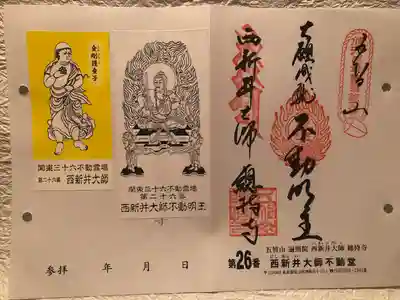 金剛護童子
関東三十六不動霊場
第二十六番 西新井大師
関東三十六不動霊場
第二十六番
西新井大師不動明王
五智山
大願成就
不動明王
西新井大師
總持寺
五智山 遍照院 西新井大師 總持寺
第26番 西新井大師不動堂
参拝 年 月 日